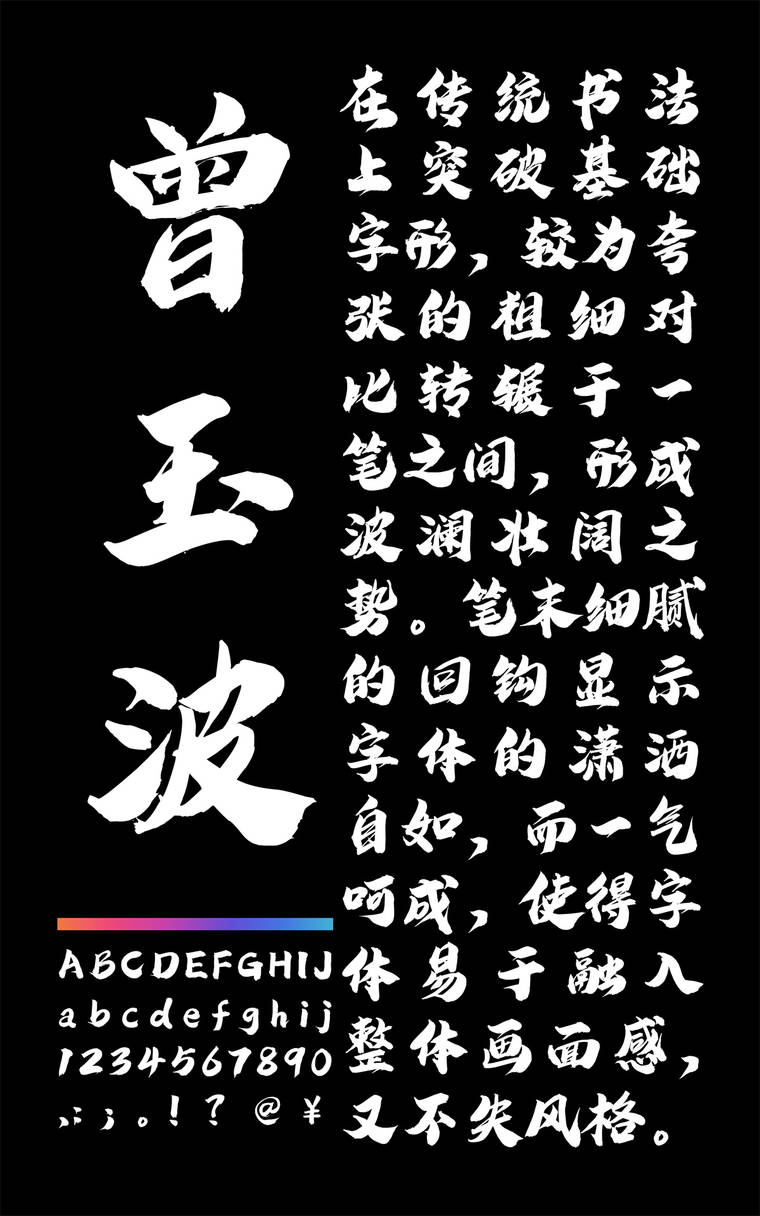 曾
玉
波
ABCDEFGHIJ
abcdefghij
1234567890
,:;。!? @¥
在传统书法
上突破基础
字形，较为夸
张的粗细对
比转辗于一
笔之间，形成
波澜壮阔之
势。笔末细腻
的回钩显示
字体的潇洒
自如，而一气
呵成，使得字
体易于融入
整体画面感，
又不失风格。